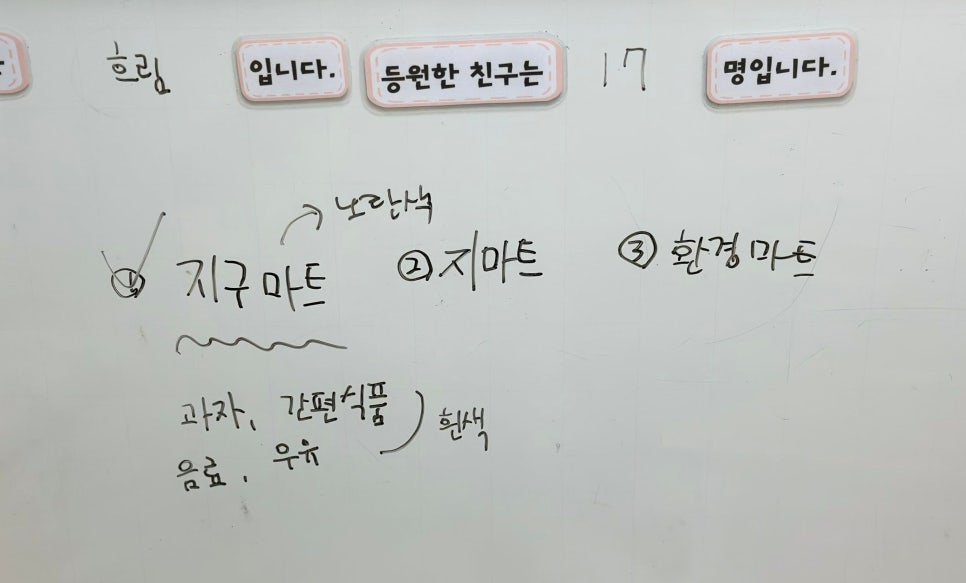 흐림 입니다. 등원한 친구는 17 명입니다.
노란색
① 지구마트 ② 지마트 ③ 환경마트
과자, 간편식품
흰색
음료, 우유